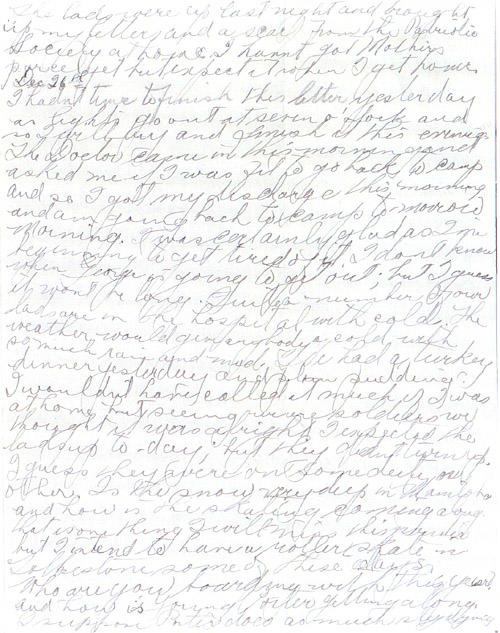 The lads were up last night and brought
up my letters and a scarf from the Patriotic
Society at home. I haven't got Mothers
parcel yet but expect it when I get home.
Dec 26th
I hadn't time to finish this letter yesterday
as lights go out at seven o'clock and
so I'll try and finish it this evening.
The Doctor came in this morning and
asked me if I was fit to go back to camp
and so I got my discharge this morning
and am going back to camp to-morrow
morning. I was certainly glad as I'm
beginning to get tired of it. I don't know
when George is going to get out, but I guess
it won't be long. Quite a number of our
lads are in the hospital with cold. The
weather would give anybody a cold with
so much rain and mud. We had a turkey
dinner yesterday and plum pudding.
I wouldn't have called it much if I was
at home, but seeing we're soldiers we
thought it was alright. I expected the
lads up to-day, but they didn't turn up.
I guess they were on some duty or
other. Is the snow very deep in Manitoba
and how is the skating coming along
that is one thing I will miss this winter
but I intend to have a roller skate in
Folkestone some of these days.
Who are you boarding with this year,
and how is young getting along
I suppose does as much